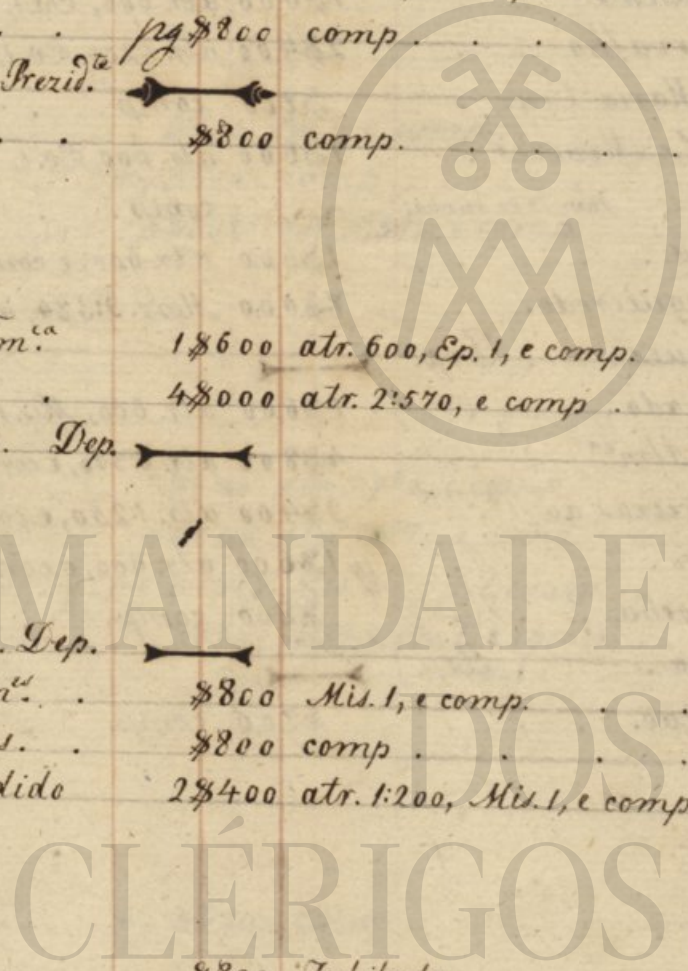 . . pg. $800 comp . . . .
Prezid.te
. . $800 comp. . . . .
m.ca 1$600 atr. 600, Ep. 1, e comp.
. 4$000 atr. 2:570, e comp .
. Dep.
MANDADE
. Dep.
n.es . $800 Mis. 1, e comp. . .
s. . $800 comp . . . .
DOS
dido 2$400 atr. 1:200, Mis. 1, e comp
CLÉRIGOS